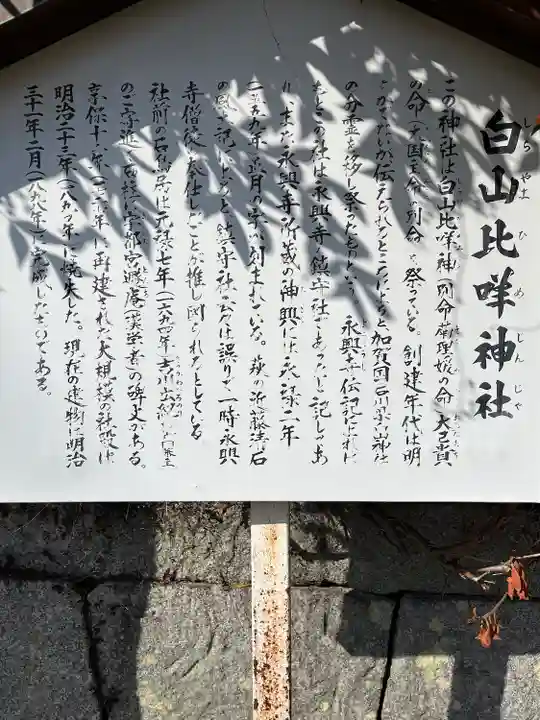 白山比咩神社
しらやまひめじんじゃ
この神社は白山比咩神(別命菊理媛の命)大己貴
の命(大国主命の別命)を祭っている。創建年代は明
らかでないが伝えられるところによると加賀国(石川県)白山神社
の分霊を移し祭ったものという。永興寺伝記によれば
もとこの社は永興寺の鎮守社であったと記してあ
り、また永興寺所蔵の神輿には永禄二年
(一五五九年)正月の字が刻まれている。萩の近藤清石
の風土記によると鎮守社云々は誤りで一時永興
寺僧徒が奉仕したことが推し図られるとしている
社前の石鳥居は元禄七年(一六九四年)吉川
のご寄進で宇都宮遯庵(漢学者)の碑文がある。
享保十一年に再建された大規模の社殿は
明治二十二年(一八八九年)に焼失した。現在の建物は明治
三十一年二月(一八九八年)に完成したものである。